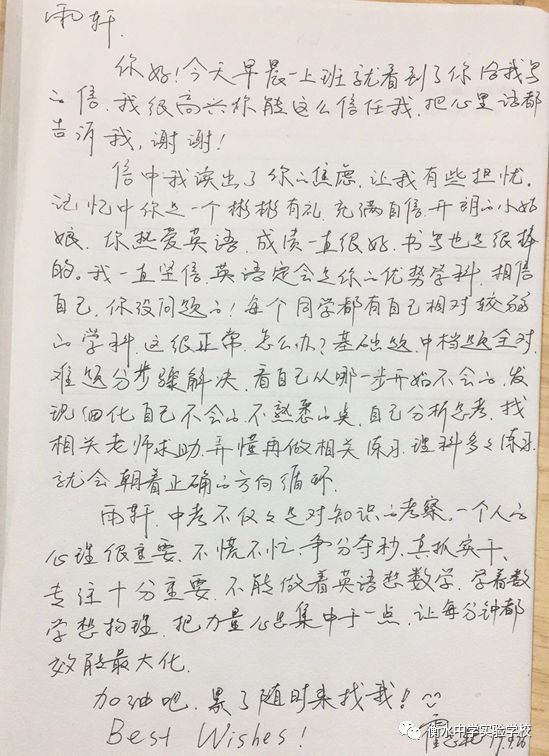 雨轩.
你好!今天早晨一上班就看到了你给我写
的信.我很高兴你能这么信任我.把心里话都
告诉我,谢谢!
信中我读出了你的焦虑.让我有些担忧.
记忆中你是一个彬彬有礼.充满自信.开朗的小姑
娘.你热爱英语.成绩一直很好.书写也是很棒
的.我一直坚信.英语定会是你的优势学科.相信
自己.你没问题的!每个同学都有自己相对较弱
的学科.这很正常.怎么办?基础题.中档题全对.
难题分步骤解决.看自己从哪一步开始不会的.发
现细化自己不会的.不熟悉的点.自己分析思考.找
相关老师求助.弄懂再做相关练习.理科多多练习.
就会朝着正确的方向循环.
雨轩.中考不仅仅是对知识的考察.一个人的
心理很重要.不慌不忙.争分夺秒.真抓实干、
专注十分重要.不能做着英语想数学.学着数
学想物理.把力量心思集中于一点.让每分钟都
效能最大化.
加油吧.累了随时来找我!
Best Wishes!
衡水中学实验学校